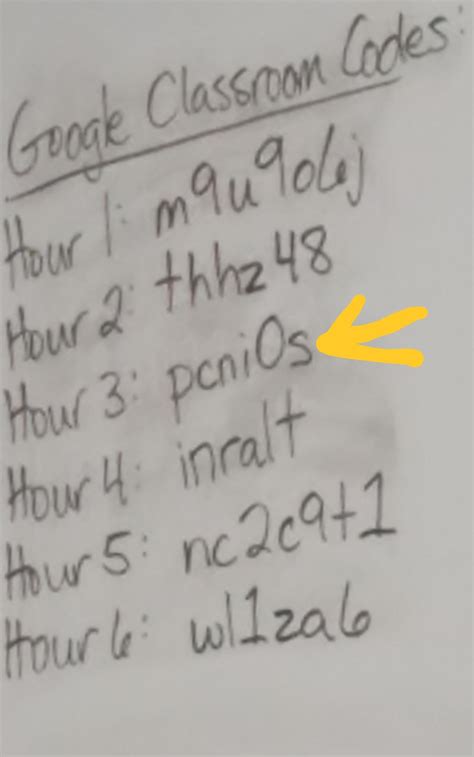 Google Classroom Codes:
Hour 1: m9u9o6j
Hour 2: thhz48
Hour 3: pcni0s
Hour 4: inralt
Hour 5: nc2c9t1
Hour 6: wl1za6